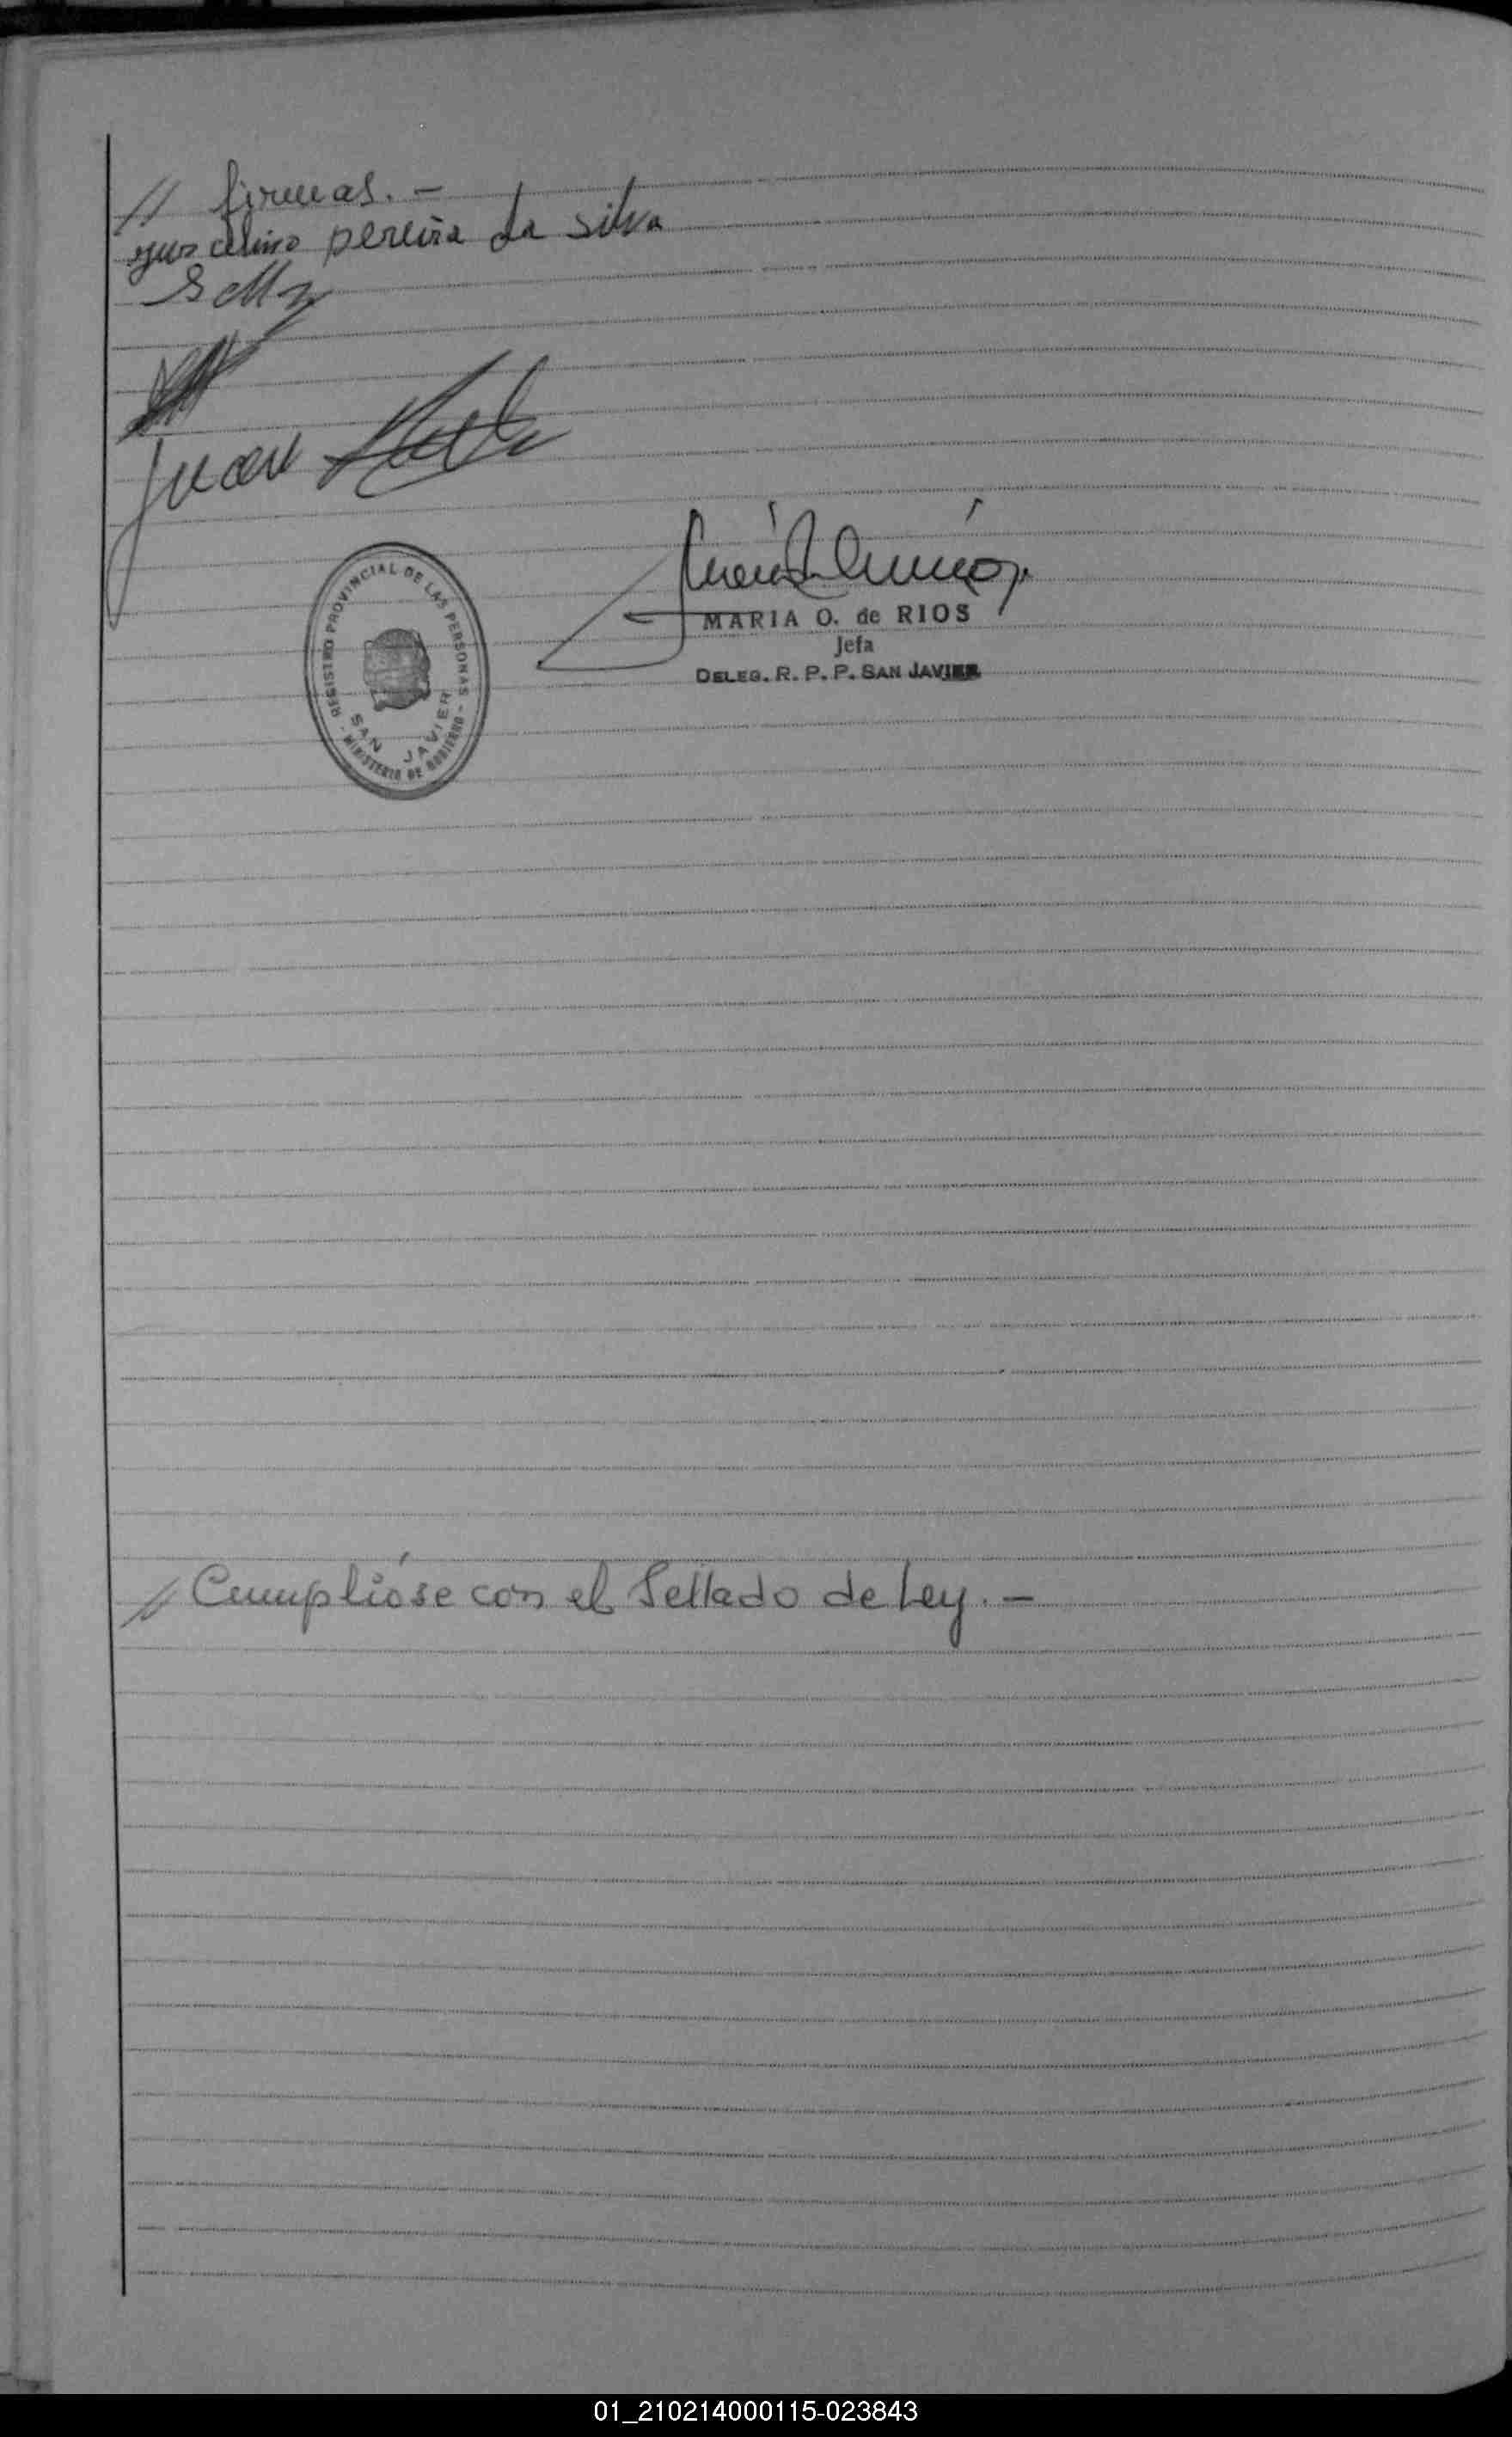 // firmas. -
juscelino pereira da silva
Juan
REGISTRO PROVINCIAL DE LAS PERSONAS - MINISTERIO DE GOBIERNO -
SAN JAVIER
MARIA O. de RIOS
Jefa
DELEG. R. P. P. SAN JAVIER
// Cumplióse con el Sellado de Ley. -
01_210214000115-023843